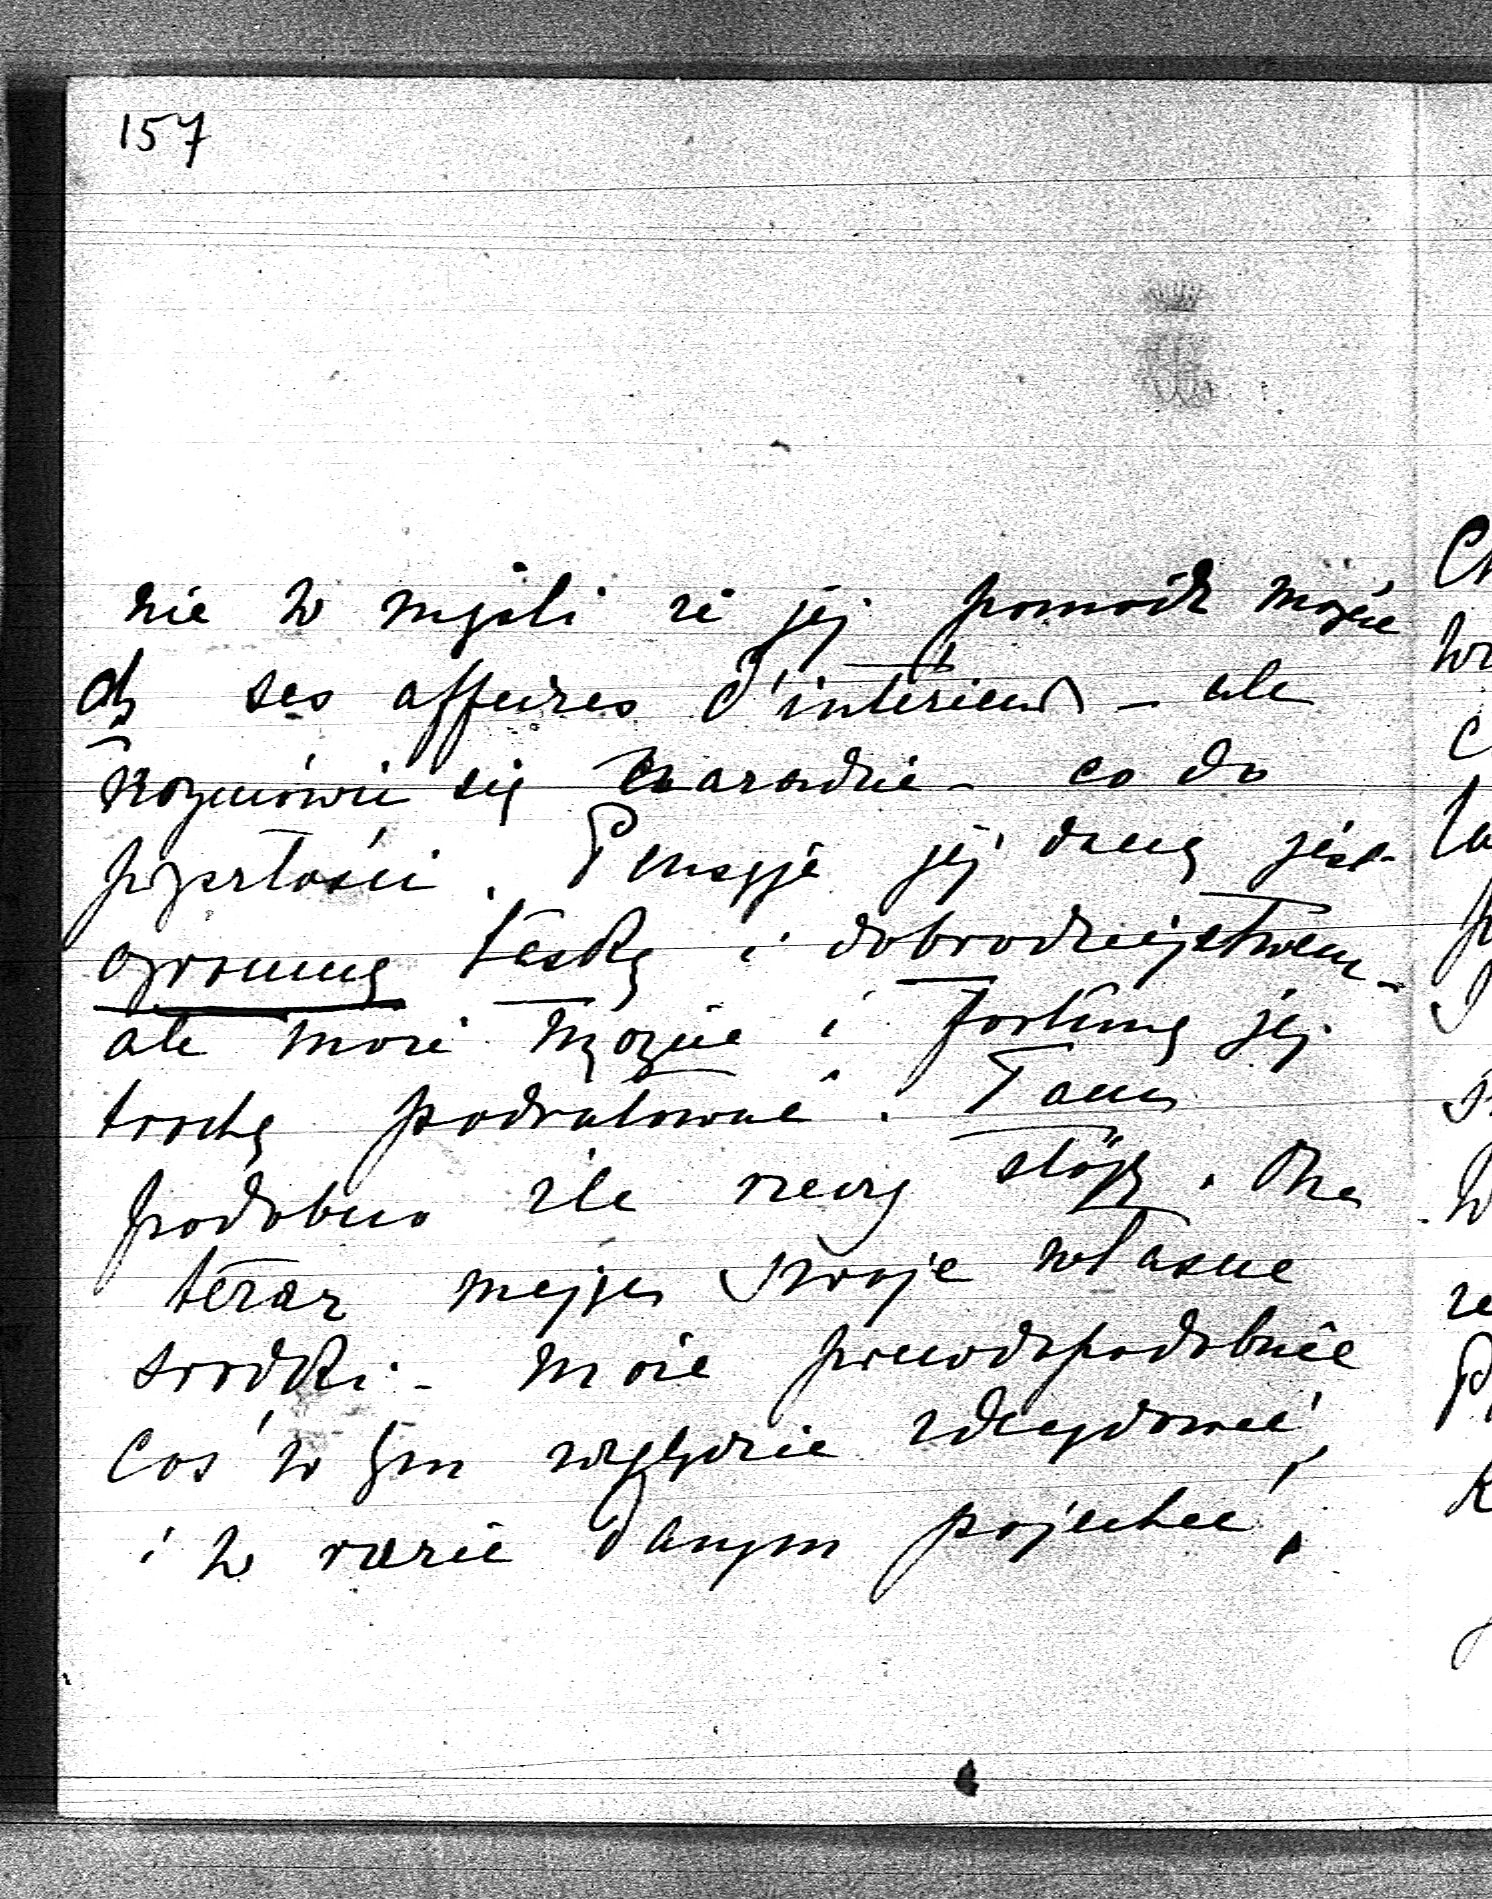 157
nie w myśli że jej pomódz można
ses affaires d'intérieur – ale
Rozmówić się naradzie – co do
przyszłości. Pensyje jej daną jest
ogromną łaską i dobrodziejstwem –
ale może można i fortunę jej
trochę podratować. Tam
podobno źle rzeczy stoją. Ona
teraz mając swoje własne
srodki – może prawdopodobnie
coś w tym względzie zdecydować,
i w razie danym pojechać,